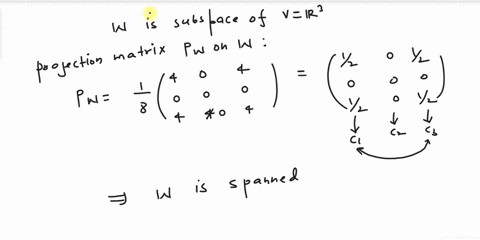 W is subspace of V=ℝ³
projection matrix P_W on W :
P_W = 1/8 (4 0 4
0 0 0
4 0 4) = (1/2 0 1/2
0 0 0
1/2 0 1/2)
↓ ↓ ↓
C₁ C₂ C₃
⇒ W is spanned